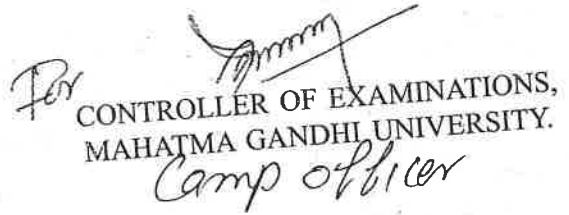 For
CONTROLLER OF EXAMINATIONS,
MAHATMA GANDHI UNIVERSITY.
Camp officer